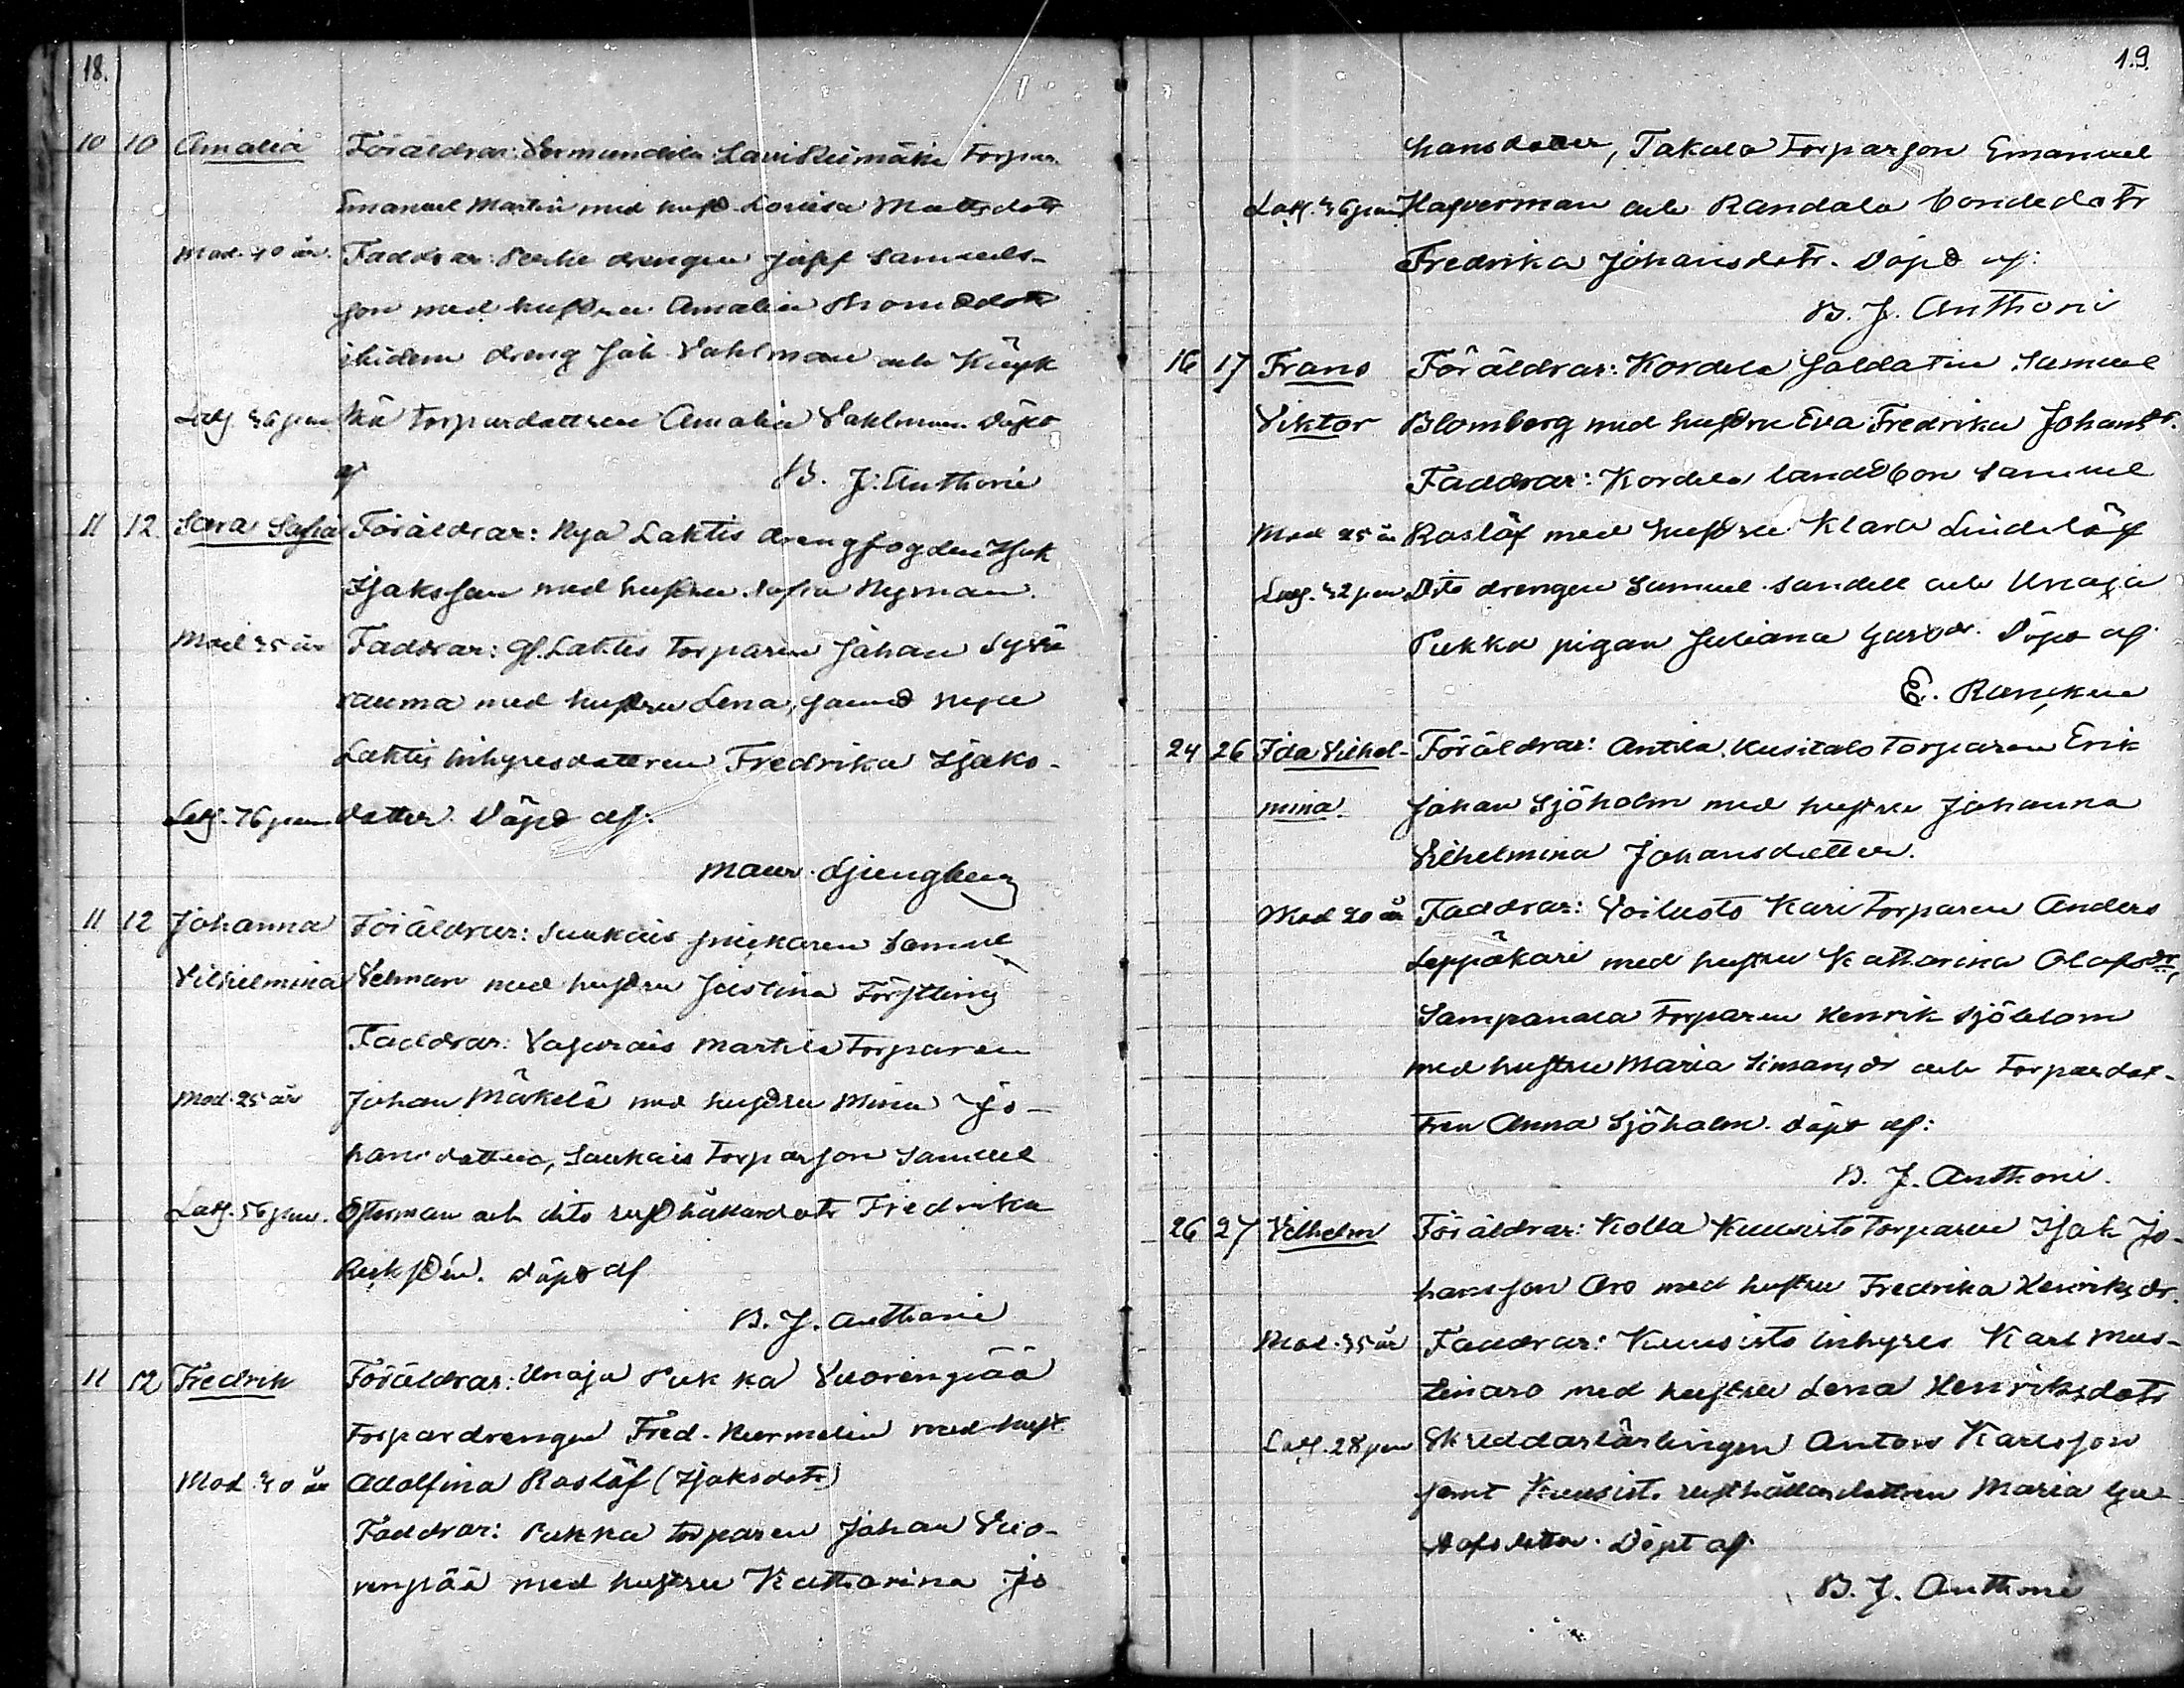 18.
10 10 Amalia Föräldrar: Vermundila Torpar.
Emanuel Martin med hust. Lovisa Mattsdotr
Mod. 40 år. Faddrar: drengen Josef Samuels-
son med hustru Amalia
ibidem dreng Joh. Vahlman och
torpardottren Amalia Vahlman. Döpt
af B. J. Anthoni
11 12. Sara Sofia Föräldrar: Nya Laktis drengfogden Isak
Isaksson med hustru Sofia Nyman.
Mod 35 år Faddrar: Gl. Laktis torparen Johan Syvä
rauma med hustru Lena, samt nya
Laktis inhyresdottren Fredrika Isaks-
dotter. Döpt af:
Maur. Ljungberg
11 12 Johanna Föräldrar: Saukais snickaren Samuel
Vilhelmina Velman med hustru Justina Förstling
Faddrar: Martila Torparen
Mod. 25 år Johan Mäkelä med hustru Mina Jo-
hansdotter, Saukais Torparson Samuel
Österman och dito rusthållardotr Fredrika
Döpt af
B. J. Anthoni
11 12 Fredrik Föräldrar: Unaja Pukka Vuorenpää
Torpardrengen Fred. Nurmelin med hust.
Mod. 40 år Adolfina Roslöf (Isaksdotr)
Faddrar: Pukka torparen Johan Vuo-
renpää med hustru Katharina Jo
19.
hansdotter, Takala Torparson Emanuel
Hagverman och Randala bondedotr
Fredrika Johansdotr. Döpt af:
B. J. Anthoni
16 17 Frans Föräldrar: Kordela Soldaten Samuel
Viktor Blomberg med hustru Eva Fredrika Johansdr.
Faddrar: Kordela landtbon Samuel
Mod 25 år Roslöf med hustru Klara Lindelöf
Dito drengen Samuel Sandell och Unaja
Pukka pigan Juliana Gust.dr. Döpt af
E. Rancken
24 26 Ida Vilhel- Föräldrar: Antila Kusitalo torparen Erik
mina. Johan Sjöholm med hustru Johanna
Vilhelmina Johansdotter.
Mod 20 år Faddrar: Voiluoto Kari torparen Anders
Leppäkari med hustru Katharina Olofsdr,
Sampanala Torparen Henrik Sjöblom
med hustru Maria Simonsdr och Torpardot-
tren Anna Sjöholm. Döpt af:
B. J. Anthoni.
26 27 Vilhelm Föräldrar: Kolla Kuusisto torparen Isak Jo-
hansson Aro med hustru Fredrika Henriksdr.
Mod. 35 år Faddrar: Kuusisto inhyres Karl Mus-
tinaro med hustru Lena Henriksdotr
Skräddarlärlingen Anton Karlsson
samt Kuusisto rusthållardottren Maria Gu
stafsdotter. Döpt af
B. J. Anthoni